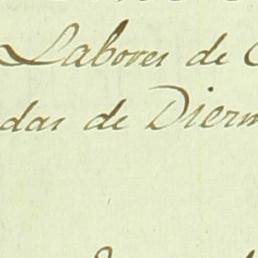 Labores de
das de Dierm